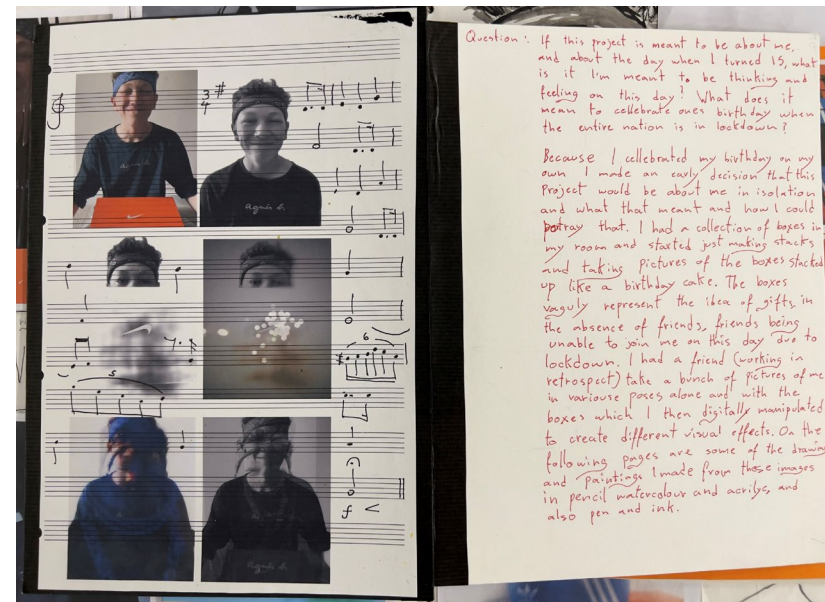 3
4
agnès b.
agnès b.
5
6
f
agnès b.
Question: If this project is meant to be about me,
and about the day when I turned 15, what
is it I'm meant to be thinking and
feeling on this day? What does it
mean to cellebrate ones birthday when
the entire nation is in lockdown?
Because I cellebrated my birthday on my
own I made an early decision that this
Project would be about me in isolation
and what that meant and how I could
potray that. I had a collection of boxes in
my room and started just making stacks
and taking pictures of the boxes stacked
up like a birthday cake. The boxes
vaguly represent the idea of gifts, in
the absence of friends, friends being
unable to join me on this day due to
lockdown. I had a friend (working in
retrospect) take a bunch of pictures of me
in variouse poses alone and with the
boxes which I then digitally manipulated
to create different visual effects. On the
following pages are some of the drawing
and paintings I made from those images
in pencil watercolour and acrilys, and
also pen and ink.